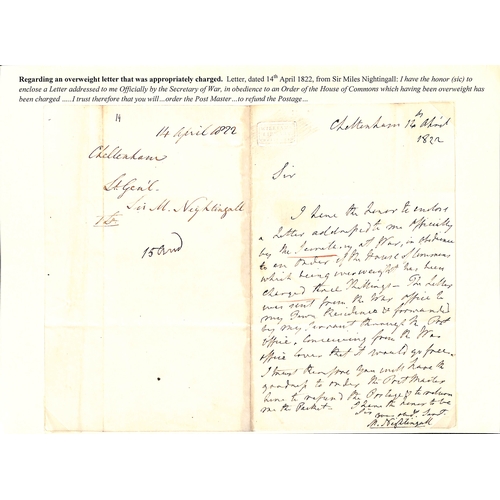 Regarding an overweight letter that was appropriately charged. Letter, dated 14th April 1822, from Sir Miles Nightingall: I have the honor (sic) to
enclose a Letter addressed to me Officially by the Secretary of War, in obedience to an Order of the House of Commons which having been overweight has
been charged …..I trust therefore that you will…order the Post Master…to refund the Postage…
14
14 April 1822
Cheltenham
Lt Genl.
Sir M. Nightingall
15
Cheltenham 14th April
1822
Sir
I have the honor to enclose
a Letter addressed to me officially
by the Secretary at War, in obedience
to an Order of the House of Commons
which being overweight has been
charged three Shillings - The Letter
was sent from the War office to
my Town Residence & forwarded
by my servant through the Post
office, conceiving from the War
office cover that it would go free.
I trust therefore you will have the
goodness to order the Post Master
here to refund the Postage & to return
me the Packet. I have the honor to be
Sir your obd. Servt
M. Nightingall